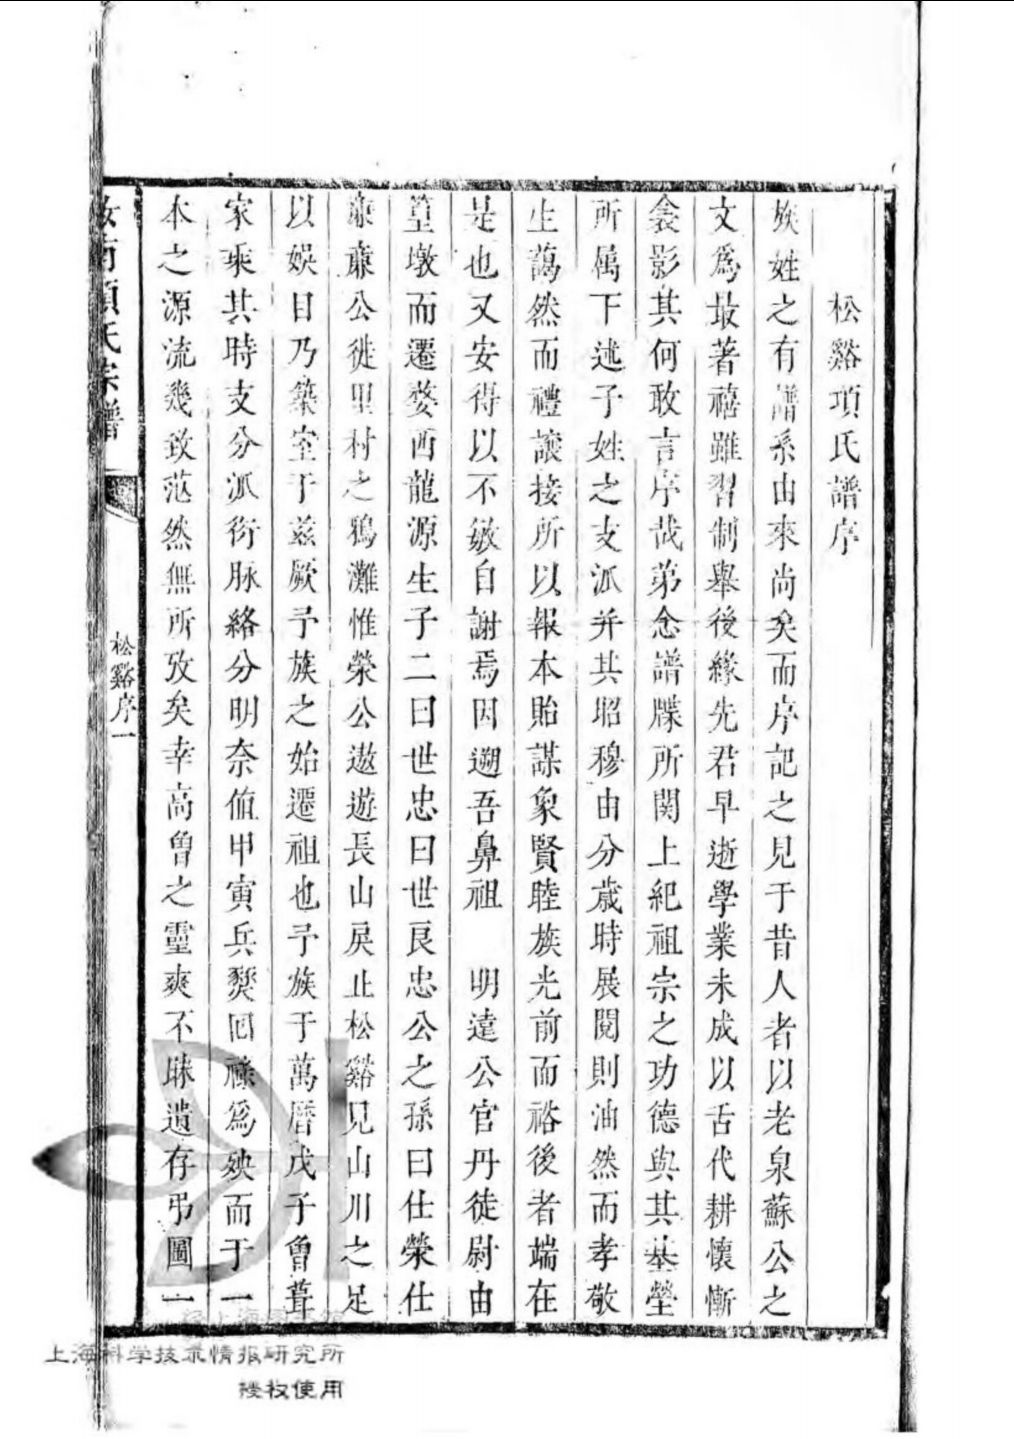 松谿項氏譜序
族姓之有譜系由來尚矣而序記之見于昔人者以老泉蘇公之
文爲最著禧雖習制舉後緣先君早逝學業未成以舌代耕懷慚
衾影其何敢言序哉第念譜牒所関上紀祖宗之功德與其基塋
所属下述子姓之支派并其昭穆由分歲時展閱則油然而孝敬
生藹然而禮讓接所以報本貽謀象賢睦族光前而裕後者端在
是也又安得以不敏自謝焉因遡吾鼻祖　明達公官丹徒尉由
篁墩而遷婺西龍源生子二曰世忠曰世良忠公之孫曰仕榮仕
廉公徙里村之鴉灘惟榮公遨遊長山戾止松谿見山川之足
以娛目乃築室于兹厥予族之始遷祖也予族于萬曆戊子曾葺
家乘其時支分派衍脉絡分明奈値甲寅兵燹囘祿爲殃而于一
本之源流幾致茫然無所攷矣幸高曾之靈爽不昧遺存弔圖一
汝南項氏宗譜
松谿序一
上海科学技术情报研究所
授权使用